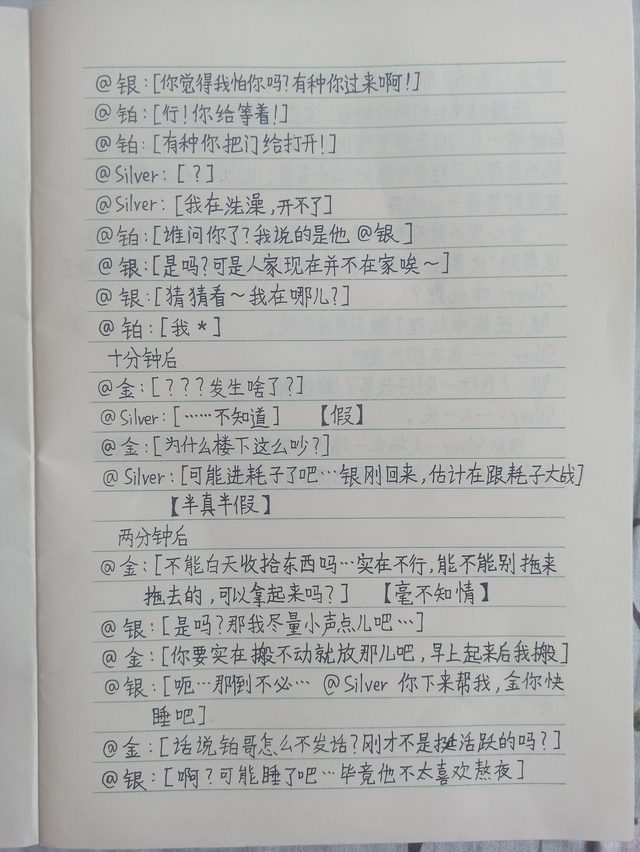 @银:[你觉得我怕你吗?有种你过来啊!]
@铂:[行!你给等着!]
@铂:[有种你把门给打开!]
@Silver:[?]
@Silver:[我在洗澡,开不了]
@铂:[谁问你了?我说的是他 @银]
@银:[是吗?可是人家现在并不在家唉～]
@银:[猜猜看～我在哪儿?]
@铂:[我*]
十分钟后
@金:[???发生啥了?]
@Silver:[……不知道] 【假】
@金:[为什么楼下这么吵?]
@Silver:[可能进耗子了吧…银刚回来,估计在跟耗子大战]
【半真半假】
两分钟后
@金:[不能白天收拾东西吗…实在不行,能不能别拖来
拖去的,可以拿起来吗?] 【毫不知情】
@银:[是吗?那我尽量小声点儿吧…]
@金:[你要实在搬不动就放那儿吧,早上起来后我搬]
@银:[呃…那倒不必… @Silver 你下来帮我,金你快
睡吧]
@金:[话说铂哥怎么不发话?刚才不是挺活跃的吗?]
@银:[啊?可能睡了吧…毕竟他不太喜欢熬夜]